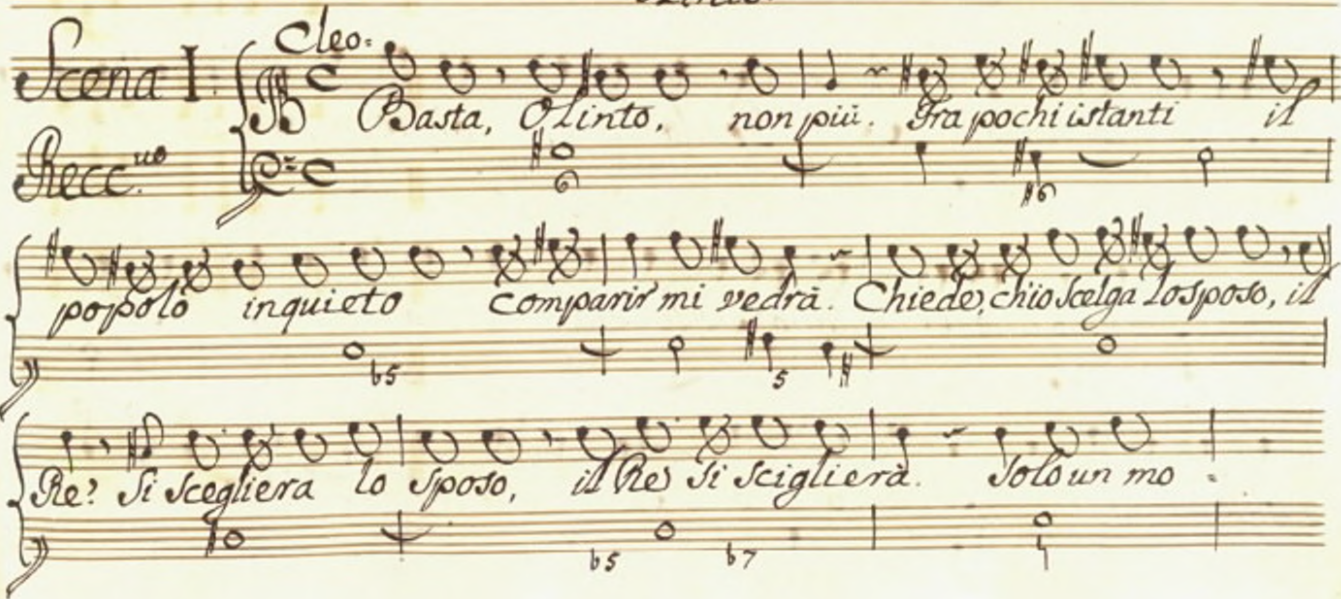 Cleo:
Scena I.
Basta, Olinto, non più. Fra pochi istanti il
Recc.uo
popolo inquieto comparir mi vedrà. Chiede, ch'io scelga lo sposo, il
Re? Si scegliera lo sposo, il Re si sciglierà. Solo un mo =